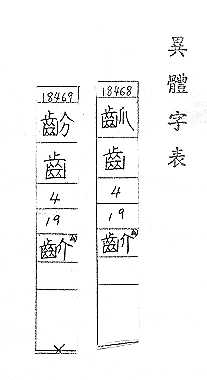 異體字表
18468
齒
4
19
齘
18469
齒
4
19
齘